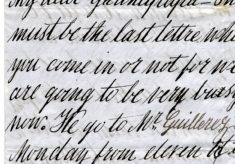 my dear Grandpapa - 
must be the last lettre whi
you come in or not for w
are going to be very busy
now. He go to Mr. Guillerez
Monday from eleven to